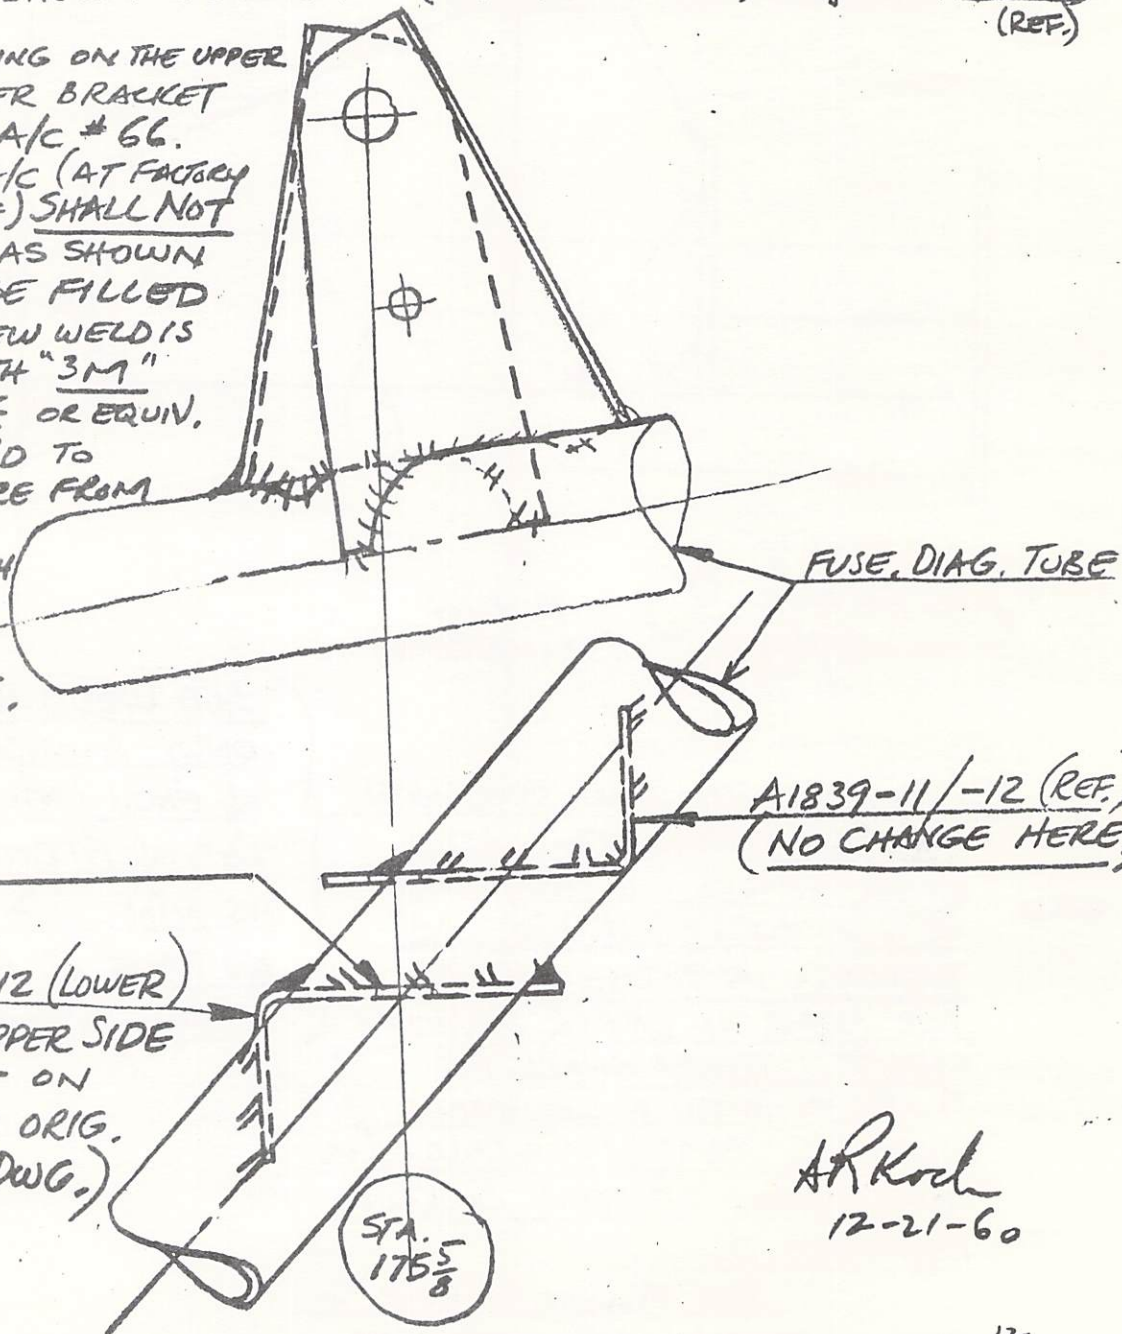 (REF.)
ING ON THE UPPER
ER BRACKET
A/C # 66.
/C (AT FACTORY
) SHALL NOT
AS SHOWN
BE FILLED
EW WELD IS
TH "3M"
E OR EQUIV.
D TO
RE FROM
H
FUSE. DIAG. TUBE
A1839-11/-12 (REF.)
(NO CHANGE HERE)
12 (LOWER)
PPER SIDE
T ON
ORIG.
DWG.)
STA.
175 5/8
ARKoch
12-21-60